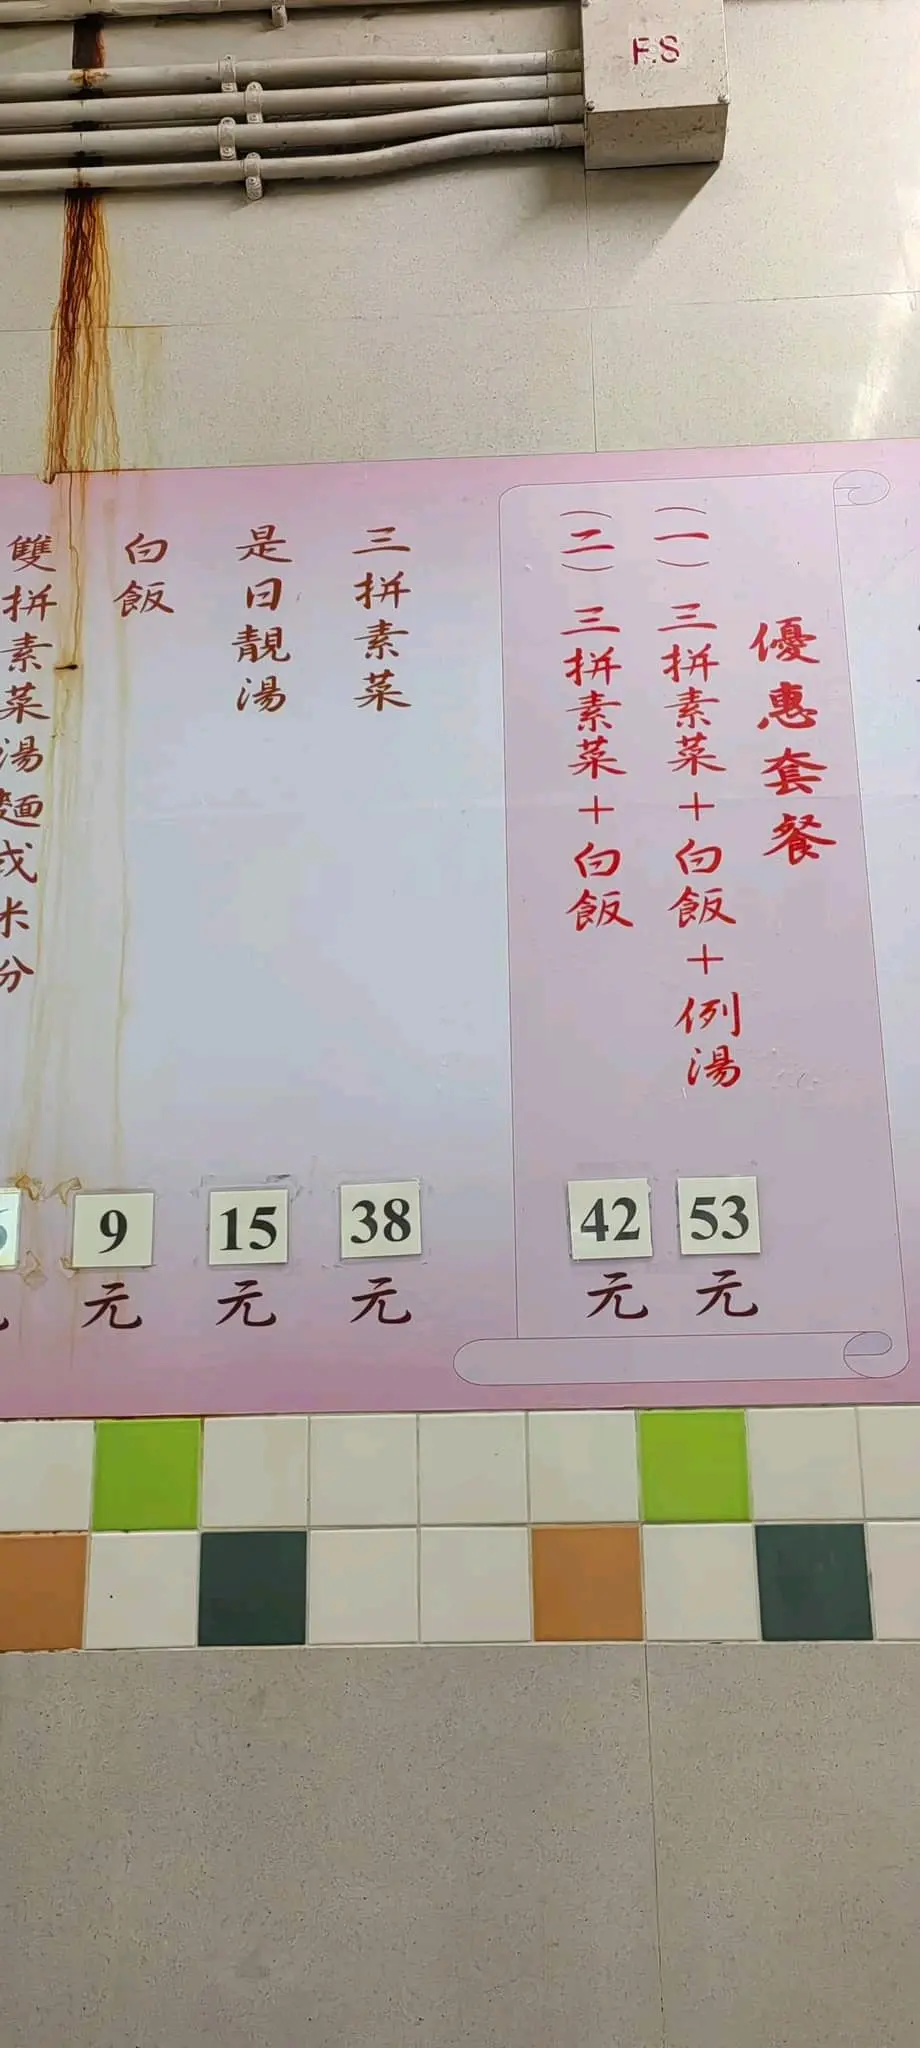 F.S
優惠套餐
（一）三拼素菜＋白飯＋例湯 53元
（二）三拼素菜＋白飯 42元
三拼素菜 38元
是日靚湯 15元
白飯 9元
雙拼素菜湯麵或米分